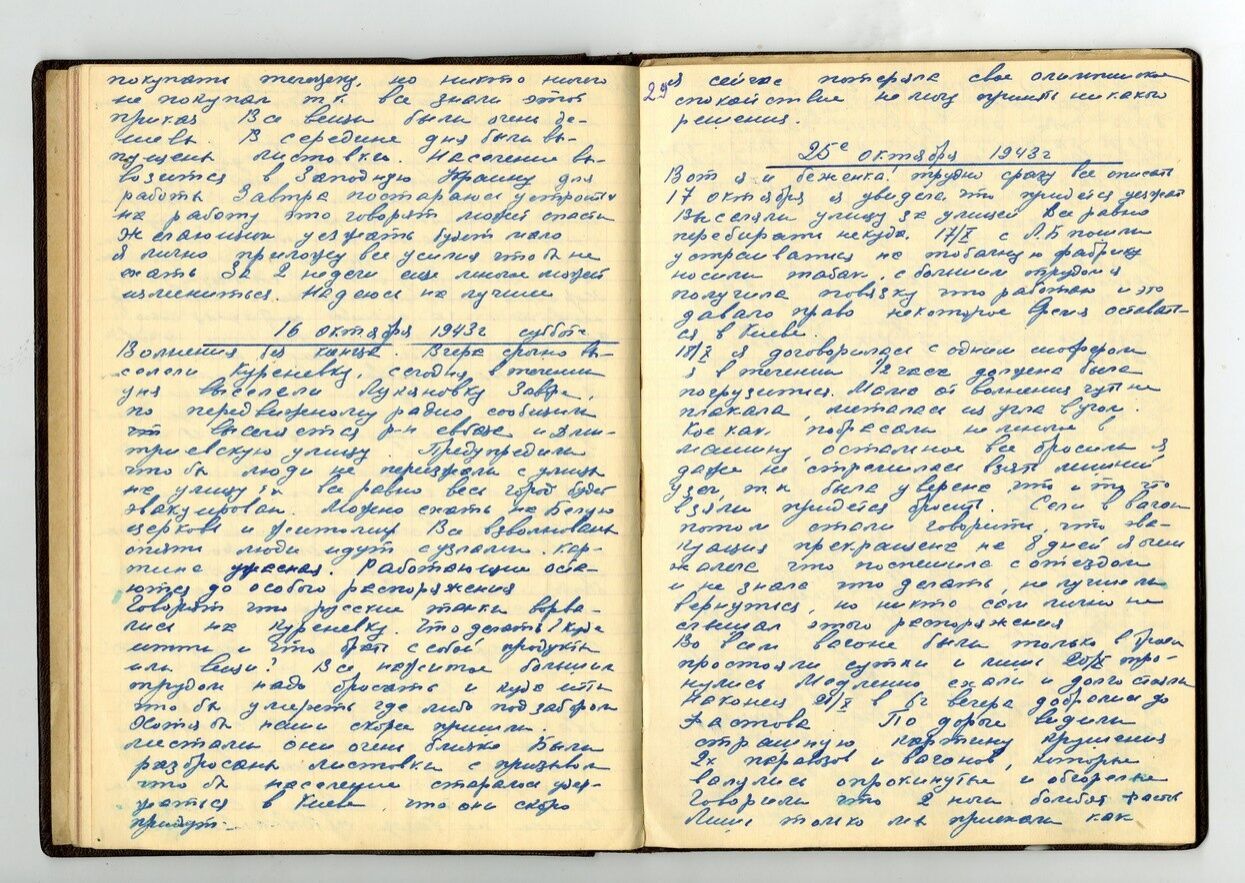 покупать тележку, но никто ничего
не покупал т.к. все знали этот
приказ Все вещи были очень де-
шевы. В середине дня были вы-
пущены листовки. Население вы-
возится в Западную Украину для
работы Завтра постараюсь устроиться
на работу это говорят может спасти
Желающих уезжать будет мало
Я лично приложу все усилия чтобы не
ехать За 2 недели еще многое может
измениться. Надеюсь на лучшее
16 октября 1943г суббота
Волнения без конца. Вчера срочно вы-
селели Куреневку, сегодня в течении
дня выселели Лукяновку Завтра,
по передвижному радио сообщили
что выселяется р-н евбаза и Дми-
триевскую улицу. Предупредили
что бы люди не переезжали с улицы
на улицу т.к все равно весь город будет
эвакуирован. Можно ехать на Белую
церковь и Житомир Все взволнованы
опять люди идут с узлами. Кар-
тина ужасная. Работающие оста-
ются до особого распоряжения
Говорят что русские танки ворва-
лись на Куреневку. Что делать? Куда
итти и что брать с собой продукты
или вещи? Все нажитое большим
трудом надо бросать и куда итти
что бы умереть где либо под забором
Хотя бы наши скорей пришли.
листали они очень близко Были
разбросаны листовки с призывом
что бы население старалось удер-
жаться в Киеве, что они скоро
придут.-
29 Я сейчас потеряла свое олимпийское
спокойствие не могу принять никакого
решения.
25е октября 1943г
Вот я и беженка! трудно сразу все описать
17 октября я увидела что придется уезжать
Выселяли улицу за улицей Все равно
перебирать некуда. 17/X с Л.Б пошли
устраиваться на табачную фабрику
носили табак, с большим трудом я
получила повязку что работаю и это
давало право некоторое время оставать-
ся в Киеве.
18/X я договорилась с одним шофером
я в течении 1/2 часа должна была
погрузиться. Мама от волнения чуть не
плакала, металась из угла в угол.
Кое как. побросали немного в
машину, остальное все бросили я
даже не стремилась взять лишний
узел, т.к была уверена, что и то, что
взяли придется бросить. Сели в вагон
потом стали говорить, что эва-
куация прекращена на 8 дней Я очень
жалела что поспешила с отъездом
и не знала что делать, не лучше ли
вернуться, но никто сам лично не
слышал этого распоряжения
Во всем вагоне были только втроем
простояли сутки и лишь 20/X тро-
нулись Медленно ехали и долго стояли
Наконец 21/X в 6ч вечера добрались до
Фастова По дороге видели
страшную картину крушения
2х паравозов и вагонов, которые
валялись опрокинутые и обгорелые
Говорили что 2 ночи бомбят Фастов
Лишь только мы приехали как